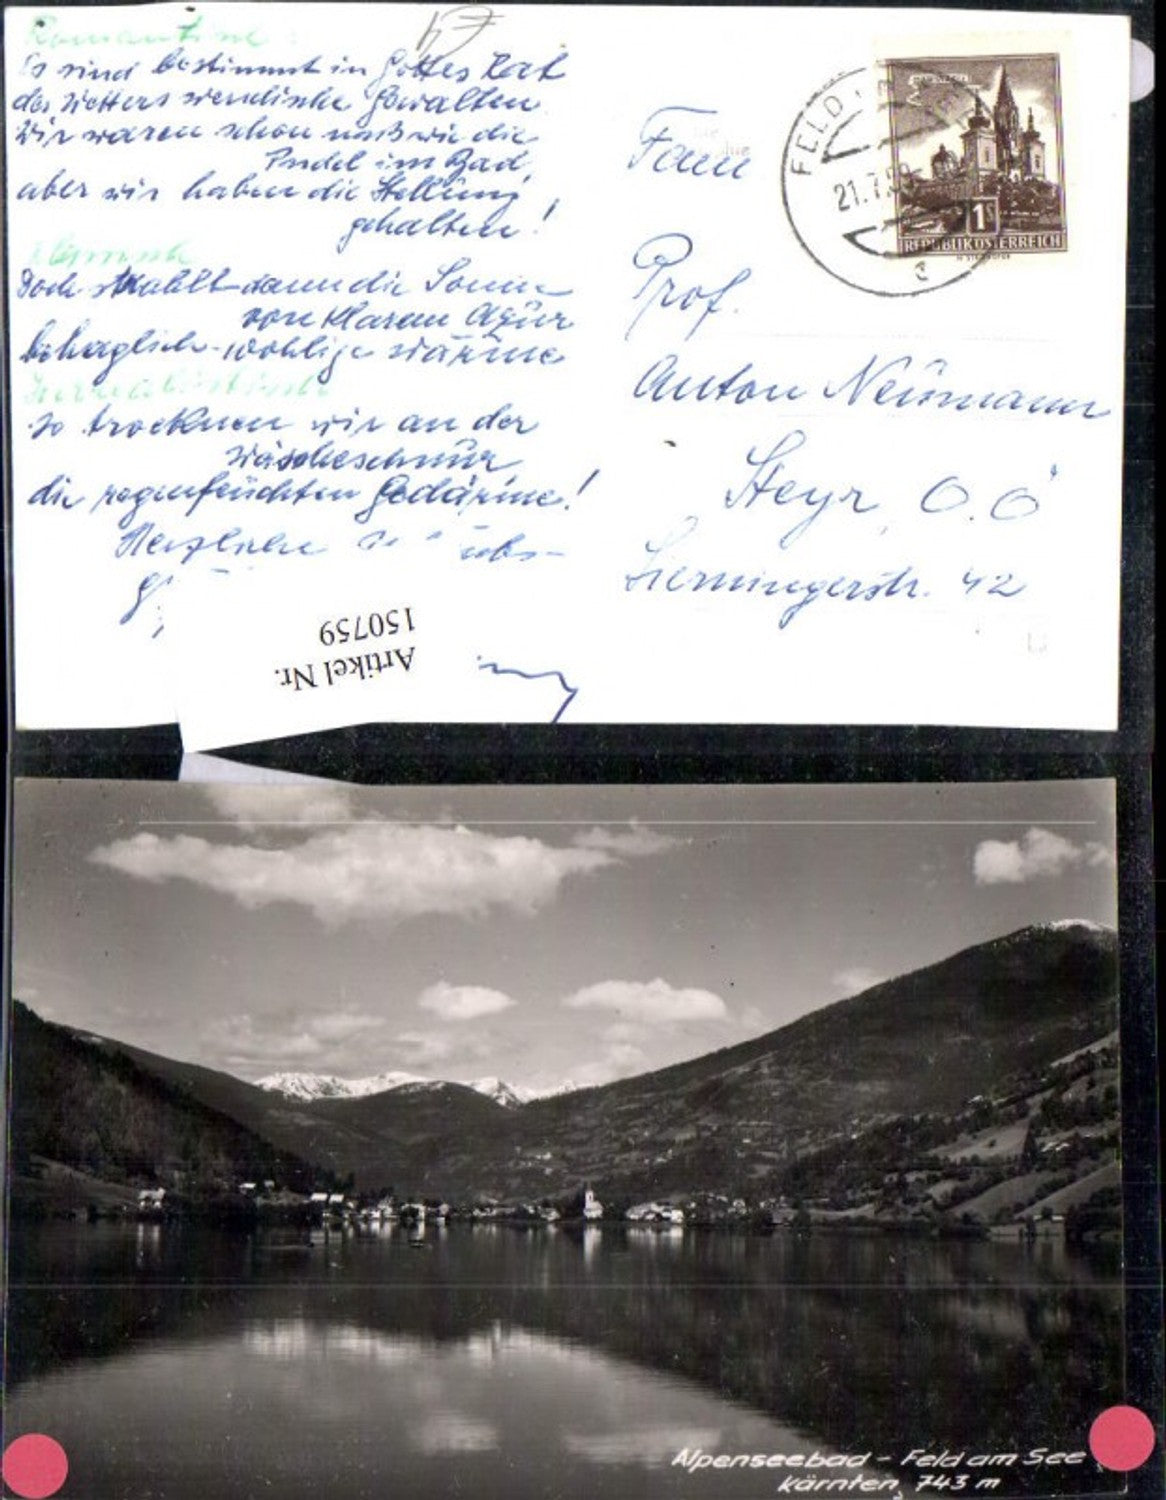 Romantisch:
Es sind bestimmt in Gottes Rat
des Wetters wendische Gewalten.
Wir waren schon naß wie die
Pudel im Bad,
aber wir haben die Stellung
gehalten!
Klassisch
Doch strahlt dann die Sonne
von klarem Azur
behaglich-wohlige Wärme
Surrealistisch
so trocknen wir an der
Wäscheschnur
die regenfeuchten Gedärme!
Herzliche
Artikel Nr.
150759
FELD
21.7.
c
1S
REPUBLIK ÖSTERREICH
Prof.
Anton Neumann
Steyr, O.Ö
Sierningerstr. 42
Alpenseebad - Feld am See
Kärnten, 743 m